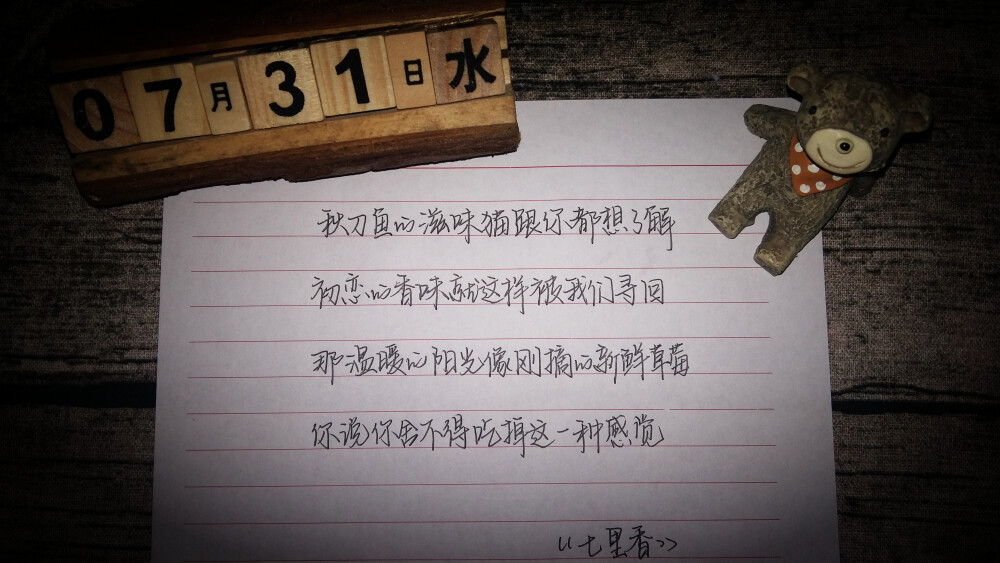 07月31日水
秋刀鱼的滋味猫跟你都想了解
初恋的香味就这样被我们寻回
那温暖的阳光像刚摘的新鲜草莓
你说你舍不得吃掉这一种感觉
《七里香》